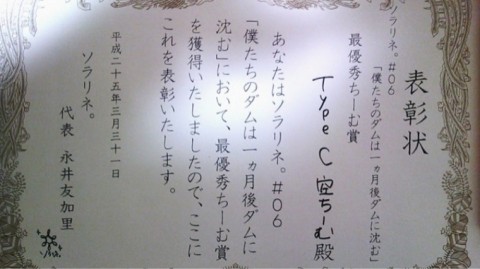 表彰状
ソラリネ。#06
「僕たちのダムは一ヵ月後ダムに沈む」
最優秀ちーむ賞
Type C 空ちーむ殿
あなたはソラリネ。#06
「僕たちのダムは一ヵ月後ダムに
沈む」において、最優秀ちーむ賞
を獲得いたしましたので、ここに
これを表彰いたします。
平成二十五年三月三十一日
ソラリネ。
代表 永井友加里